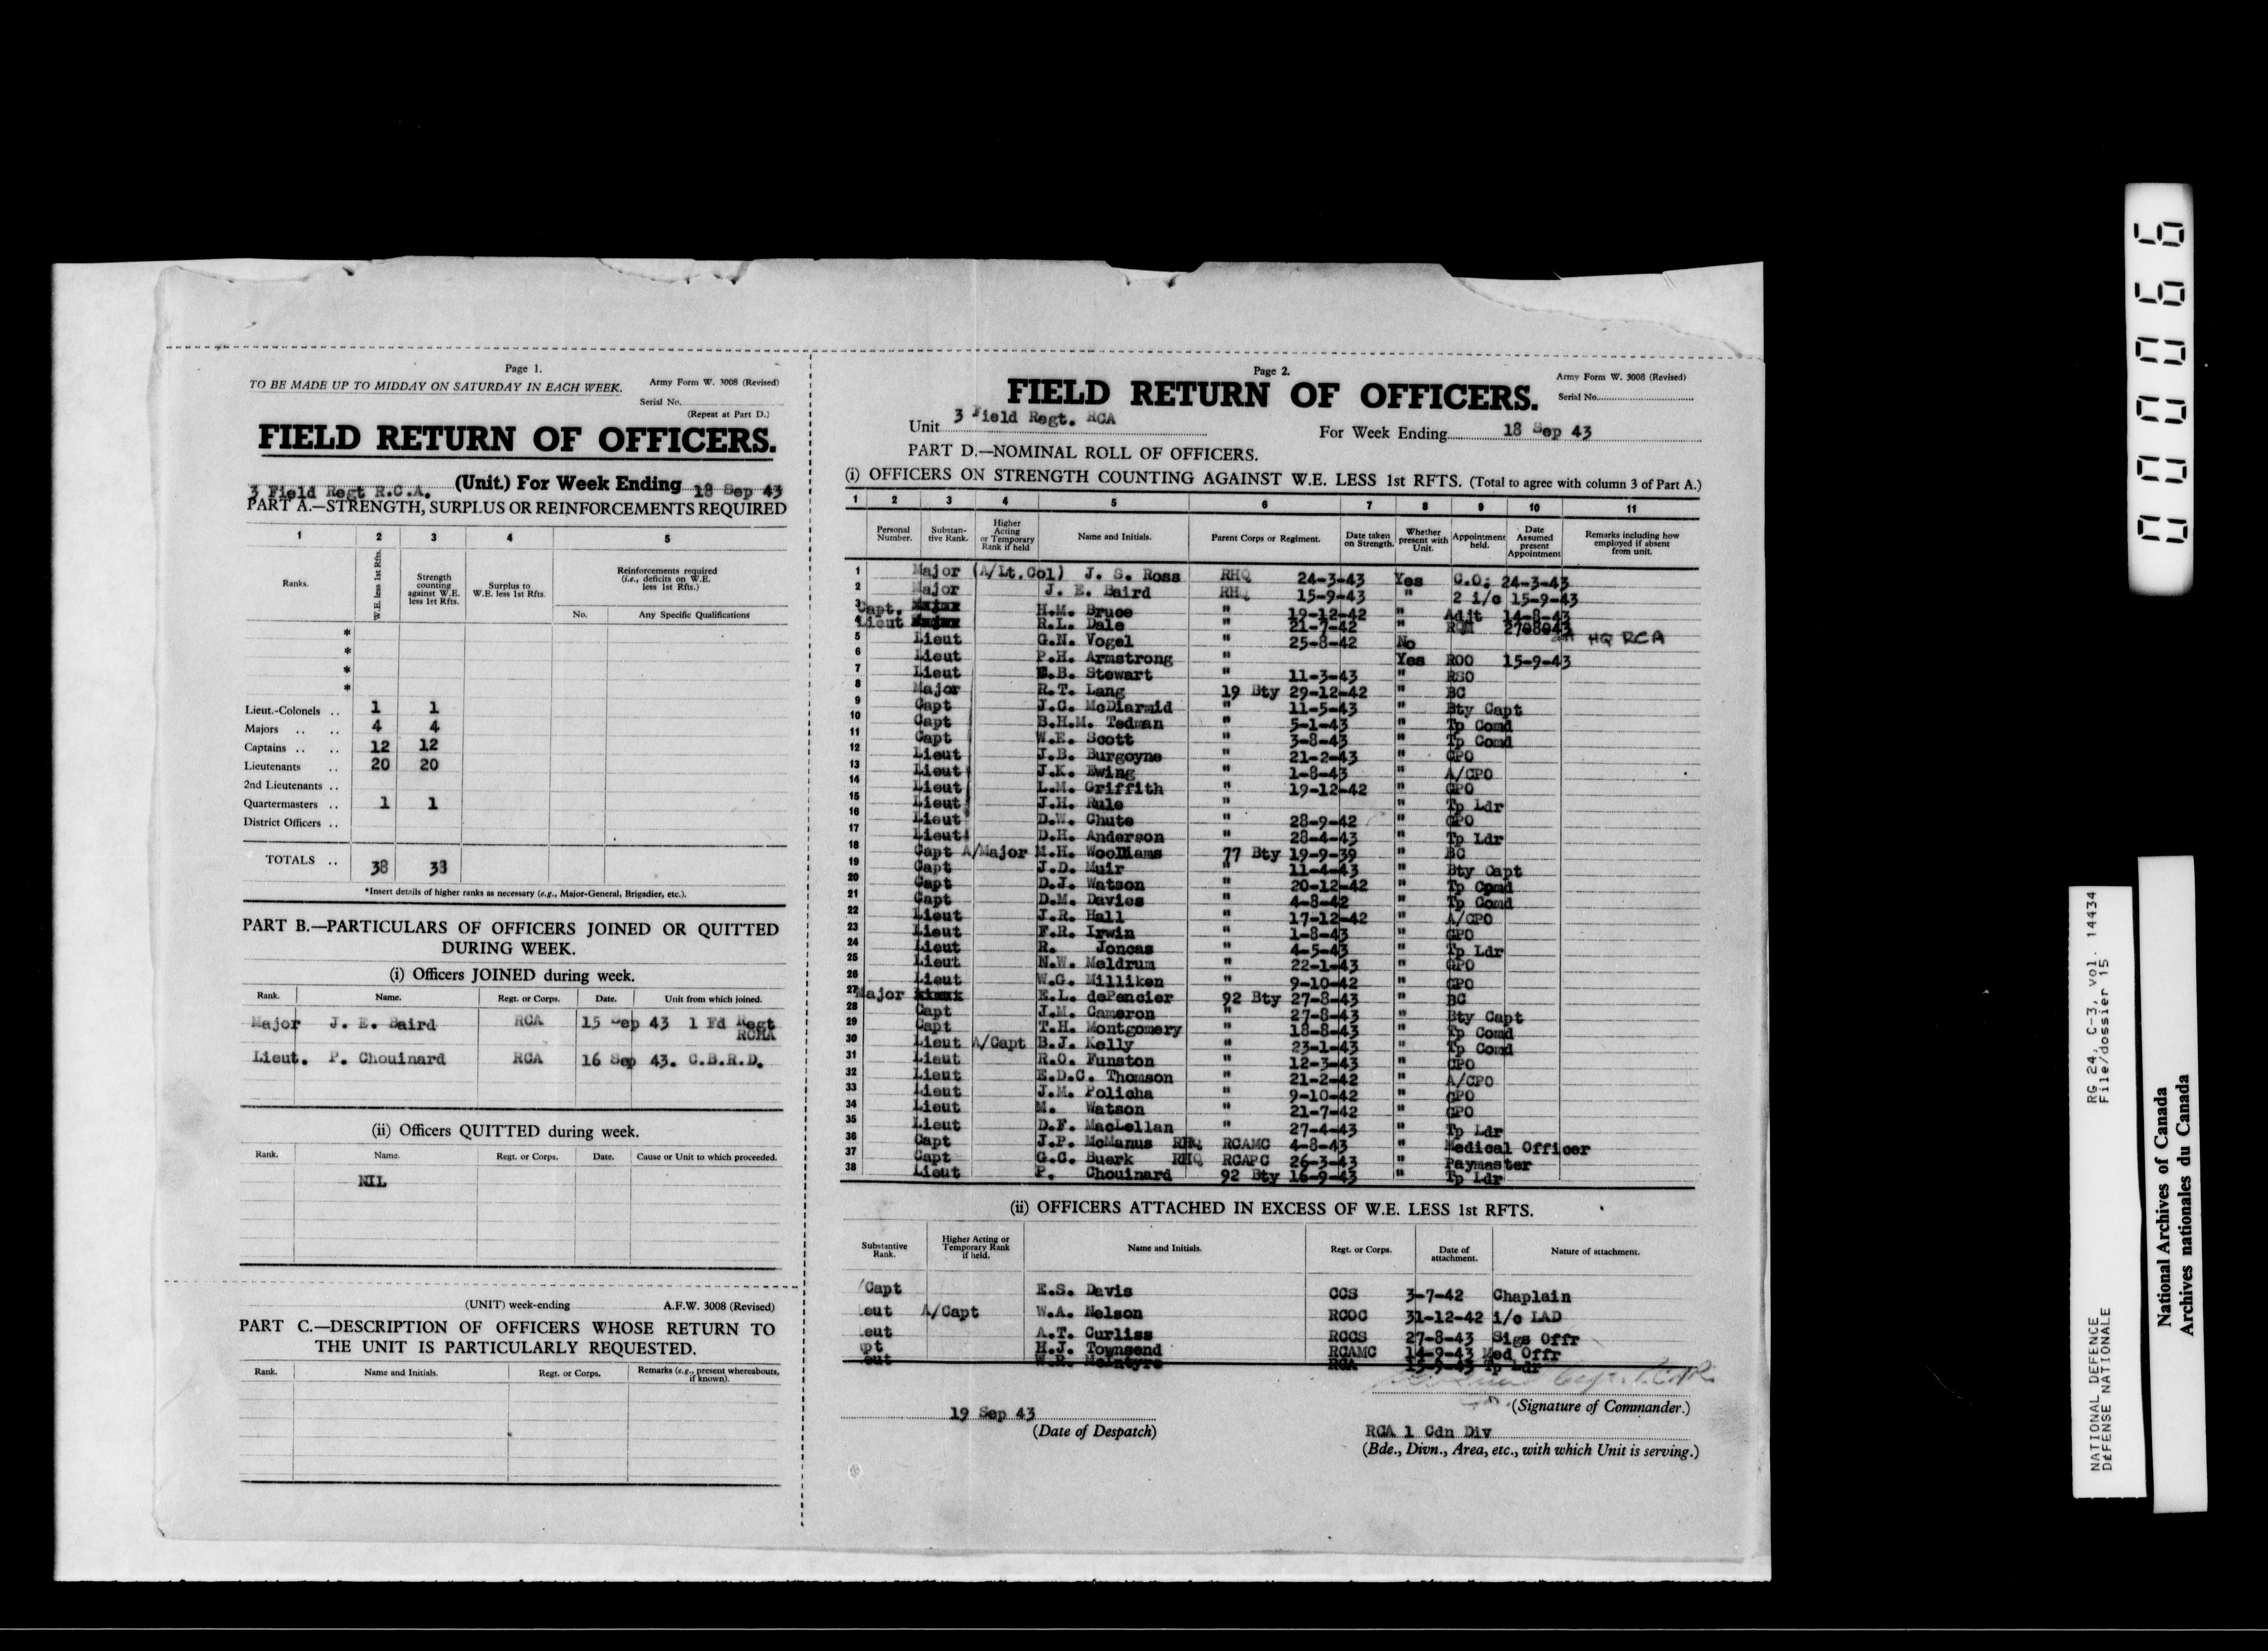 Page 1.
TO BE MADE UP TO MIDDAY ON SATURDAY IN EACH WEEK.
Army Form W. 3008 (Revised)
Serial No.
(Repeat at Part D.)
FIELD RETURN OF OFFICERS.
3 Field Regt R.C.A. (Unit.) For Week Ending 18 Sep 43
PART A.—STRENGTH, SURPLUS OR REINFORCEMENTS REQUIRED
1 2 3 4 5
Ranks. W.E. less 1st Rfts. Strength counting against W.E. less 1st Rfts. Surplus to W.E. less 1st Rfts. Reinforcements required (i.e., deficits on W.E. less 1st Rfts.)
No. Any Specific Qualifications
*
*
*
*
Lieut.-Colonels .. 1 1
Majors .. .. 4 4
Captains .. .. 12 12
Lieutenants .. 20 20
2nd Lieutenants ..
Quartermasters .. 1 1
District Officers ..
TOTALS .. 38 38
*Insert details of higher ranks as necessary (e.g., Major-General, Brigadier, etc.).
PART B.—PARTICULARS OF OFFICERS JOINED OR QUITTED
DURING WEEK.
(i) Officers JOINED during week.
Rank. Name. Regt. or Corps. Date. Unit from which joined.
Major J. E. Baird RCA 15 Sep 43 1 Fd Regt
RCHA
Lieut. P. Chouinard RCA 16 Sep 43. C.B.R.D.
(ii) Officers QUITTED during week.
Rank. Name. Regt. or Corps. Date. Cause or Unit to which proceeded.
NIL
(UNIT) week-ending A.F.W. 3008 (Revised)
PART C.—DESCRIPTION OF OFFICERS WHOSE RETURN TO
THE UNIT IS PARTICULARLY REQUESTED.
Rank. Name and Initials. Regt. or Corps. Remarks (e.g., present whereabouts, if known).
Page 2.
Army Form W. 3008 (Revised)
FIELD RETURN OF OFFICERS.
Serial No.
Unit 3 Field Regt. RCA For Week Ending 18 Sep 43
PART D.—NOMINAL ROLL OF OFFICERS.
(i) OFFICERS ON STRENGTH COUNTING AGAINST W.E. LESS 1st RFTS. (Total to agree with column 3 of Part A.)
1 2 3 4 5 6 7 8 9 10 11
Personal Number. Substan-tive Rank. Higher Acting or Temporary Rank if held Name and Initials. Parent Corps or Regiment. Date taken on Strength. Whether present with Unit. Appointment held. Date Assumed present Appointment Remarks including how employed if absent from unit.
1 Major (A/Lt.Col) J. S. Ross RHQ 24-3-43 Yes C.O. 24-3-43
2 Major J. E. Baird RHQ 15-9-43 " 2 i/c 15-9-43
3 Capt. H.M. Bruce " 19-12-42 " Adjt 14-8-43
4 Lieut R.L. Dale " 21-7-42 "
5 Lieut G.N. Vogel " 25-8-42 No HQ RCA
6 Lieut P.H. Armstrong " Yes ROO 15-9-43
7 Lieut B. Stewart " 11-3-43 " RSO
8 Major R.T. Lang 19 Bty 29-12-42 " BC
9 Capt J.C. McDiarmid " 11-5-43 " Bty Capt
10 Capt B.H.M. Tedman " 5-1-43 " Tp Comd
11 Capt W.E. Scott " 3-8-43 " Tp Comd
12 Lieut J.B. Burgoyne " 21-2-43 " CPO
13 Lieut J.K. Ewing " 1-8-43 " A/CPO
14 Lieut L.M. Griffith " 19-12-42 " GPO
15 Lieut J.H. Rule " " Tp Ldr
16 Lieut D.W. Chute " 28-9-42 " GPO
17 Lieut D.H. Anderson " 28-4-43 " Tp Ldr
18 Capt A/Major M.H. Woolliams 77 Bty 19-9-39 " BC
19 Capt J.D. Muir " 11-4-43 " Bty Capt
20 Capt D.J. Watson " 20-12-42 " Tp Comd
21 Capt D.M. Davies " 4-8-42 " Tp Comd
22 Lieut J.R. Hall " 17-12-42 " A/CPO
23 Lieut F.R. Irwin " 1-8-43 " GPO
24 Lieut R. Joncas " 4-5-43 " Tp Ldr
25 Lieut N.W. Meldrum " 22-1-43 " GPO
26 Lieut W.G. Milliken " 9-10-42 " CPO
27 Major E.L. dePencier 92 Bty 27-8-43 " BC
28 Capt J.M. Cameron " 27-8-43 " Bty Capt
29 Capt T.H. Montgomery " 18-8-43 " Tp Comd
30 Lieut A/Capt B.J. Kelly " 23-1-43 " Tp Comd
31 Lieut R.O. Funston " 12-3-43 " CPO
32 Lieut E.D.C. Thomson " 21-2-42 " A/CPO
33 Lieut J.M. Policha " 9-10-42 " GPO
34 Lieut M. Watson " 21-7-42 " GPO
35 Lieut D.F. MacLellan " 27-4-43 " Tp Ldr
36 Capt J.P. McManus RHQ RCAMC 4-8-43 " Medical Officer
37 Capt G.C. Buerk RHQ RCAPC 26-3-43 " Paymaster
38 Lieut P. Chouinard 92 Bty 16-9-43 " Tp Ldr
(ii) OFFICERS ATTACHED IN EXCESS OF W.E. LESS 1st RFTS.
Substantive Rank. Higher Acting or Temporary Rank if held. Name and Initials. Regt. or Corps. Date of attachment. Nature of attachment.
/Capt E.S. Davis CCS 3-7-42 Chaplain
eut A/Capt W.A. Nelson RCOC 31-12-42 i/c LAD
eut A.T. Curliss RCCS 27-8-43 Sigs Offr
pt H.J. Townsend RCAMC 14-9-43 Med Offr
eut W.R. McIntyre RCA 15-9-43 Tp Ldr
(Signature of Commander.)
19 Sep 43
(Date of Despatch)
RCA 1 Cdn Div
(Bde., Divn., Area, etc., with which Unit is serving.)
000066
NATIONAL DEFENCE RG 24, C-3, vol. 14434
DEFENSE NATIONALE File/dossier 15
National Archives of Canada
Archives nationales du Canada